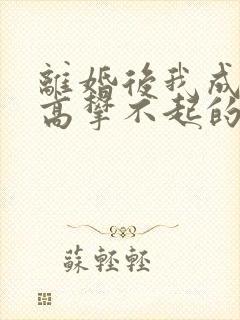 離婚後我成
高攀不起的
蘇輕輕